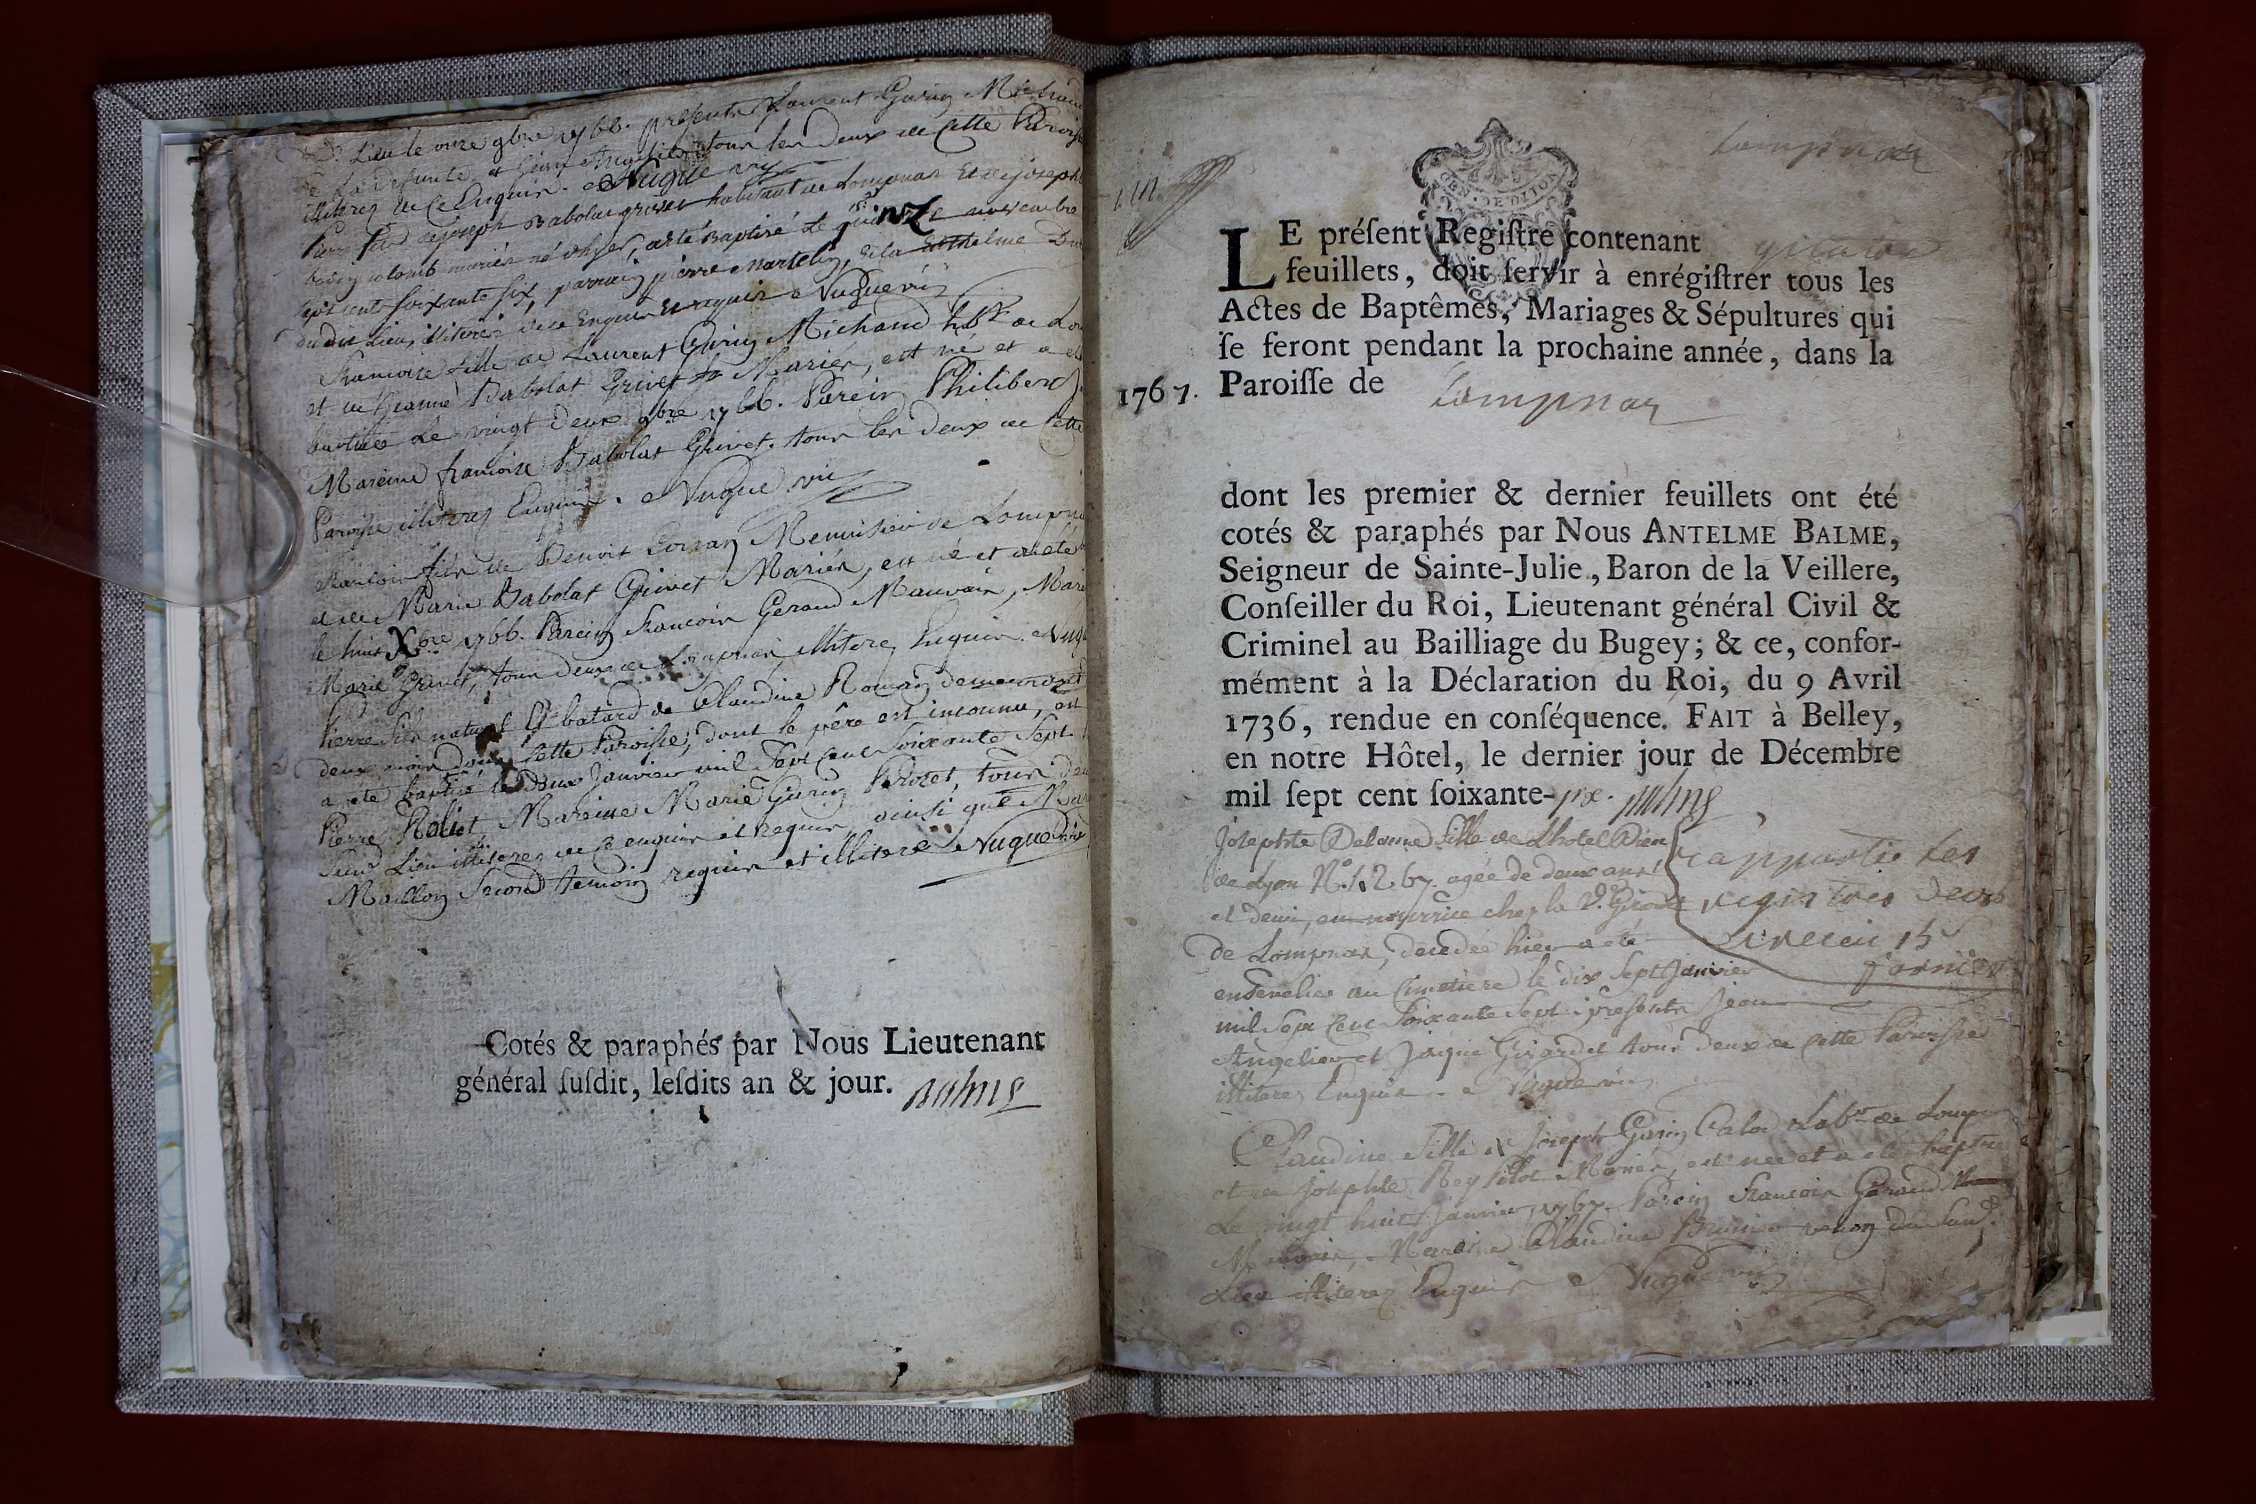 Lieu le onze 9bre 1766. presents Laurent Gurin Michaud
de La defunte, et Jean Angelier tous les deux de cette Paroisse
illiterez de ce Enquis. Nugue vic
Pierre fils de joseph Babolat grivet habitant de Lompnas Et de josephte
colomb mariés né à été Baptisé le quinze novembre
sept cent soixante six, parrain pierre Martelin,
dudit Lieu, illiterés de ce Enquis Et requis Nugue vic
Francoise fille de Laurent Gurin Michaud hbt de Lom
et de Jeanne Babolat Grivet Mariés, est né et a été
baptisée Le vingt Deux 9bre 1766. Parein Philibert
Mareine francoise Babolat Grivet. tous les deux de cette
Paroisse illiterez Enquis. Nugue vic
Francois fils de Benoit Menuisier de Lompnas
et de Marie Babolat Grivet Mariés, est né et a été
le huit Xbre 1766. Parein Francois Geraud Mauvais, Mareine
Marie Grivet, tous deux de Lompnas illiterez Enquis. Nugue
Pierre fils naturel et batard de Claudine Romain
deux mois dans cette Paroisse, dont le père est inconnu, est
a été baptisé le Deux Janvier mil Sept Cent Soixante Sept
Pierre Roliet, Mareine Marie Gurin Perozet, tous deux
Lieu illiterez de ce enquis et Requis, ainsi que
Maillon Second temoin requis et illiteré Nugue vic
Cotés & paraphés par Nous Lieutenant
général ſuſdit, leſdits an & jour. Balme
Lompnas
GEN. DE DIJON
LE préſent Regiſtre contenant quatre
feuillets, doit ſervir à enrégiſtrer tous les
Actes de Baptêmes, Mariages & Sépultures qui
ſe feront pendant la prochaine année, dans la
1767. Paroiſſe de Lompnas
dont les premier & dernier feuillets ont été
cotés & paraphés par Nous ANTELME BALME,
Seigneur de Sainte-Julie, Baron de la Veillere,
Conſeiller du Roi, Lieutenant général Civil &
Criminel au Bailliage du Bugey; & ce, confor-
mément à la Déclaration du Roi, du 9 Avril
1736, rendue en conſéquence. FAIT à Belley,
en notre Hôtel, le dernier jour de Décembre
mil ſept cent ſoixante-six. Balme
Josephte Delorme fille de Lhotel Dieu
de Lyon N.° 1267. agée de deux ans
et demi, en nourrice chez la
de Lompnas, decedée hier a été
ensevelie au Cimetiere le dix Sept Janvier
mil Sept Cent Soixante Sept. presents Jean
Angelier et Jaque Girardet tous deux de cette Paroisse
illiterez Enquis. Nugue vic
apporté les
registres
15
janvier
Claudine Fille de Joseph Gurin Calod Labr. de Lompnas
et de Josephte Rey Pilot Mariés, est née et a été baptisée
Le vingt huit Janvier 1767. Parein Francois Geraud
Mauvais, Mareine Claudine du Susd.
Lieu illiterez Enquis Nugue vic